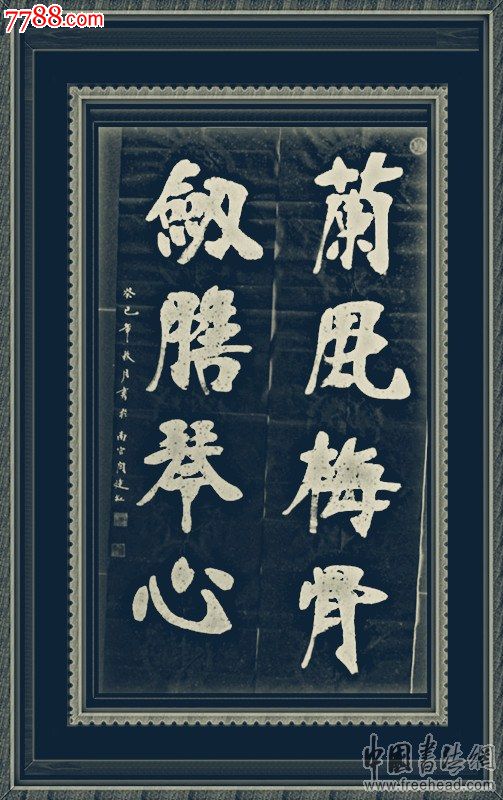 7788.com
蘭風梅骨
劔膽琴心
癸巳年秋月書於南宮
中國書法網
www.freehead.com